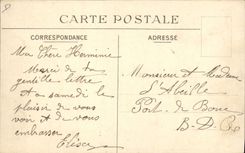 CARTE POSTALE
CORRESPONDANCE
ADRESSE
Ma Chère Herminie
Merci de ta
gentille lettre
A samedi le
plaisir de vous
voir et de vous
embrasser
Elisa
Monsieur et Madame
L'Abeille
Port de Bouc
B-D-R